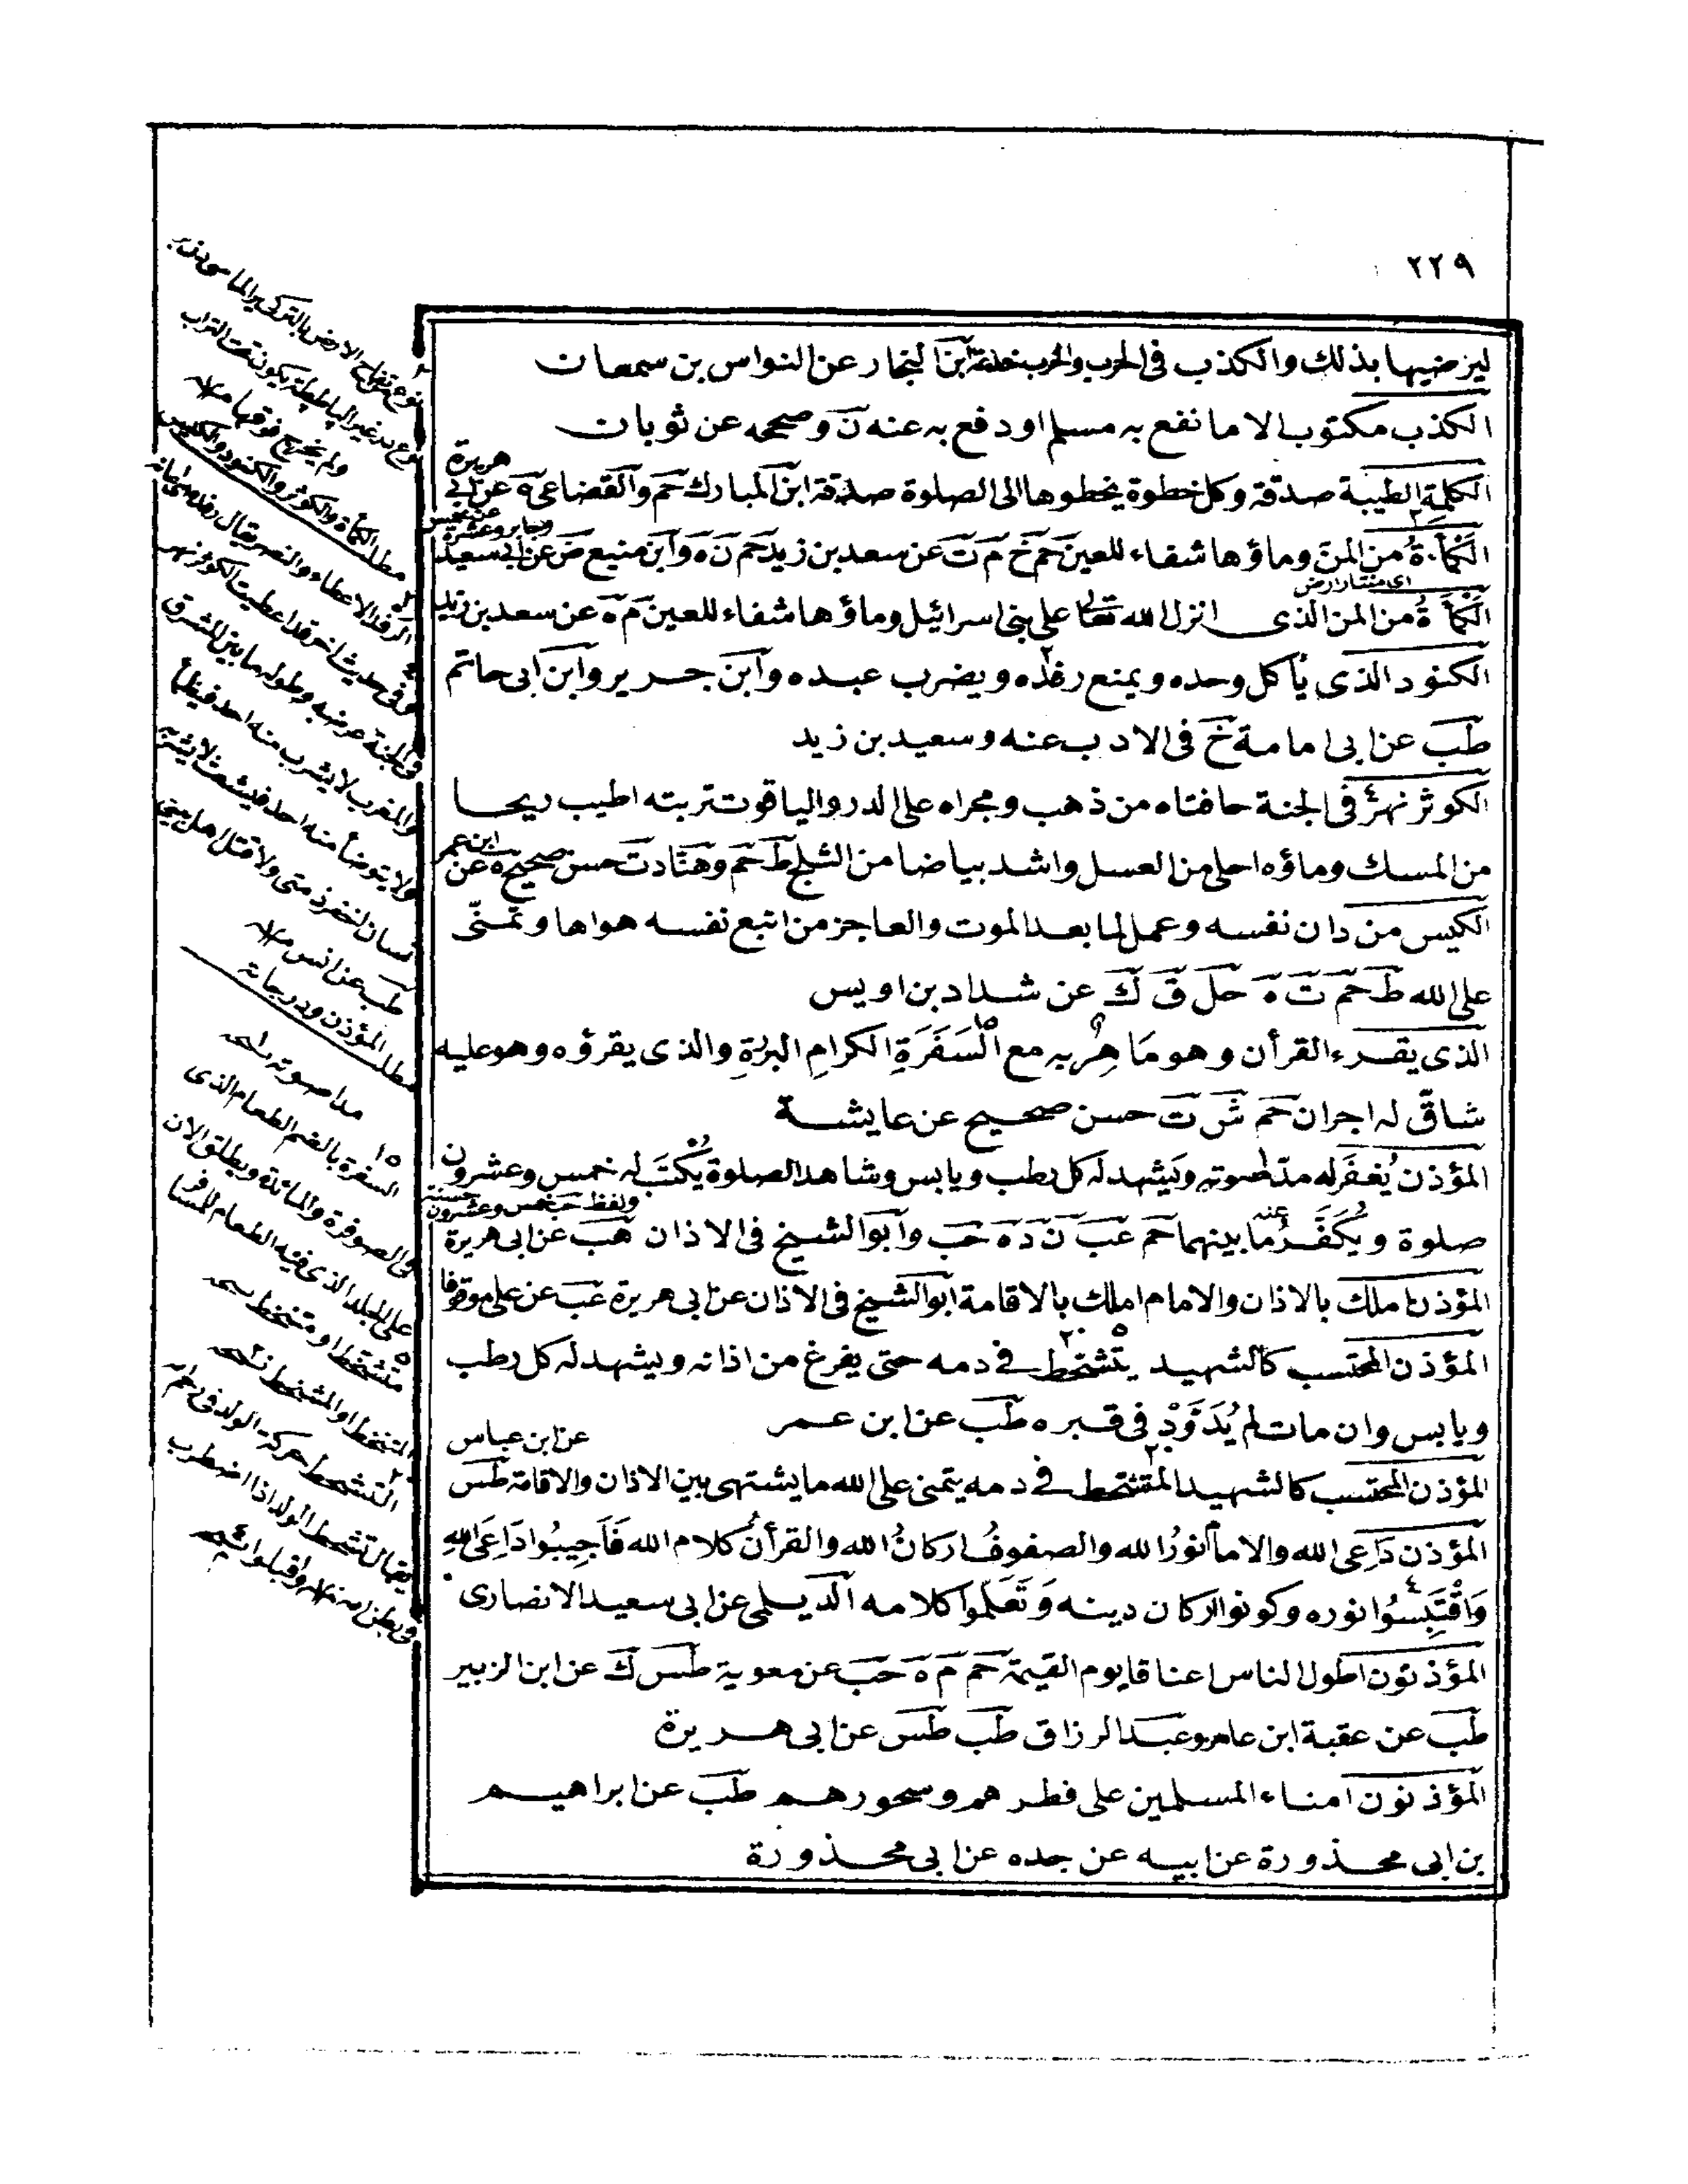 ٢٢٩
ليرضيها بذلك والكذب فى الحرب والحرب خدعة ابن النجار عن النواس بن سمعان
الكذب مكتوب الا ما نفع به مسلم او دفع به عنه ن وصححه عن ثوبان
الكلمة الطيبة صدقة وكل خطوة يخطوها الى الصلوة صدقة ابن المبارك حم والقضاعى عن ابى هريرة
الكمأة من المن وماؤها شفاء للعين حم خ م ت عن سعد بن زيد حم ن ه وابن منيع ض عن ابى سعيد
اى منتثار ارض
الكمأة من المن الذى انزل الله تعالى على بنى اسرائيل وماؤها شفاء للعين م ه عن سعد بن زيد
الكنود الذى يأكل وحده ويمنع رفده ويضرب عبده وابن جرير وابن ابى حاتم
طب عن ابى امامة خ فى الادب عنه وسعيد بن زيد
الكوثر نهر فى الجنة حافتاه من ذهب ومجراه على الدر والياقوت تربته اطيب ريحا
من المسك وماؤه احلى من العسل واشد بياضا من الثلج ط حم وهناد ت حسن صحيح ه عن ابن عمر
الكيس من دان نفسه وعمل لما بعد الموت والعاجز من اتبع نفسه هواها وتمنّى
على الله ط حم ت ه حل ق ك عن شداد بن اويس
الذى يقرء القرأن وهو مَاهِرٌ به مع السَفَرَةِ الكرامِ البررةِ والذى يقرؤه وهو عليه
شاقّ له اجران حم ش ت حسن صحيح عن عايشة
المؤذن يُغفَر له مدّ صوته ويَشهد له كل رطب ويابس وشاهد الصلوة يُكتَب له خمس وعشرون
ولفظ حب خمس وعشرون حسنة
صلوة ويُكَفَّرُ عنه ما بينهما حم عب ن د ه حب وابو الشيخ فى الاذان هب عن ابى هريرة
المؤذن املك بالاذان والامام املك بالاقامة ابو الشيخ فى الاذان عن ابى هريرة عب عن على موقوفا
المؤذن المحتسب كالشهيد يتشحّط فى دمه حتى يفرغ من اذانه ويشهد له كل رطب
ويابس وان مات لم يُدَوَّدْ فى قبره طب عن ابن عمر
المؤذن المحتسب كالشهيد المتشحط فى دمه يتمنى على الله ما يشتهى بين الاذان والاقامة طس عن ابن عباس
المؤذن دَاعى الله والامام نورُ الله والصفوفُ اركانُ الله والقرأنُ كلام الله فَأجِيبُوا دَاعَى اللهِ
وَاقْتَبِسُوا نوره وكونوا اركان دينه وَتَعَلَّموا كلامه الديلمى عن ابى سعيد الانصارى
المؤذنون اطول الناس اعناقا يوم القيمة حم م ه حب عن معوية طس ك عن ابن الزبير
طب عن عقبة ابن عامر وعبد الرزاق طب طس عن ابى هريرة
المؤذنون امناء المسلمين على فطرهم وسحورهم طب عن ابراهيم
بن ابى محذورة عن ابيه عن جده عن ابى محذورة
ولم يخرج فوقها
مطلب الكمأة والكوثر والكنود والكيس
الرفد الاعطاء والنصر يقال رفده اى اعانه
وفى حديث اخر قد اعطيت الكوثر نهر
فى الجنة عرضه وطوله ما بين المشرق
والمغرب لا يشرب منه احد فيظمأ
ولا يتوضأ منه احد فيشعث
طب عن انس
مطلب المؤذن ودرجاته
مدا صوته
السفرة بالضم الطعام الذى
على الجلد الذى فيه الطعام
التشحط حركة الولد فى رحم
يقال تشحط الولد اذا اضطرب